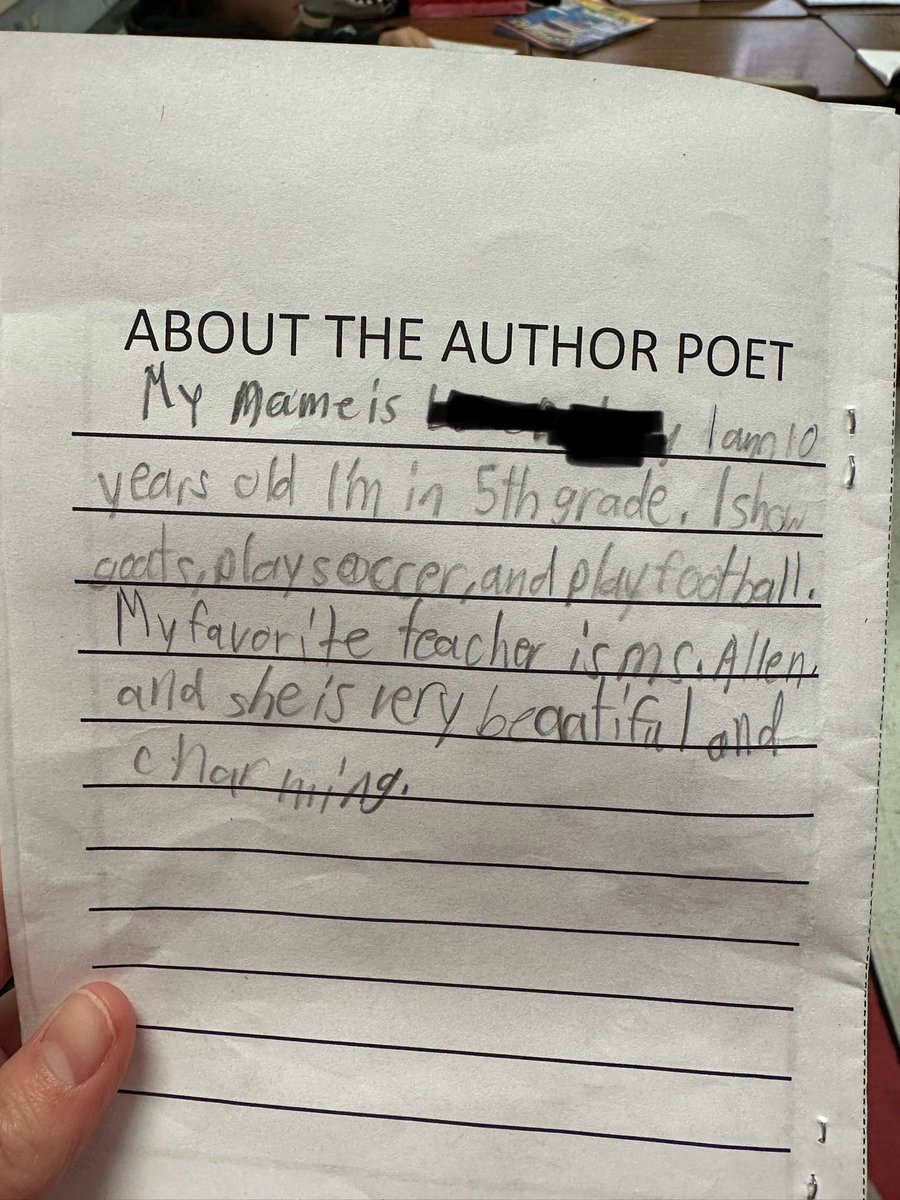 ABOUT THE AUTHOR POET
My name is I am 10
years old I'm in 5th grade. I show
goats, play soccer, and play football.
My favorite teacher is ms. Allen,
and she is very beaatiful and
charming.